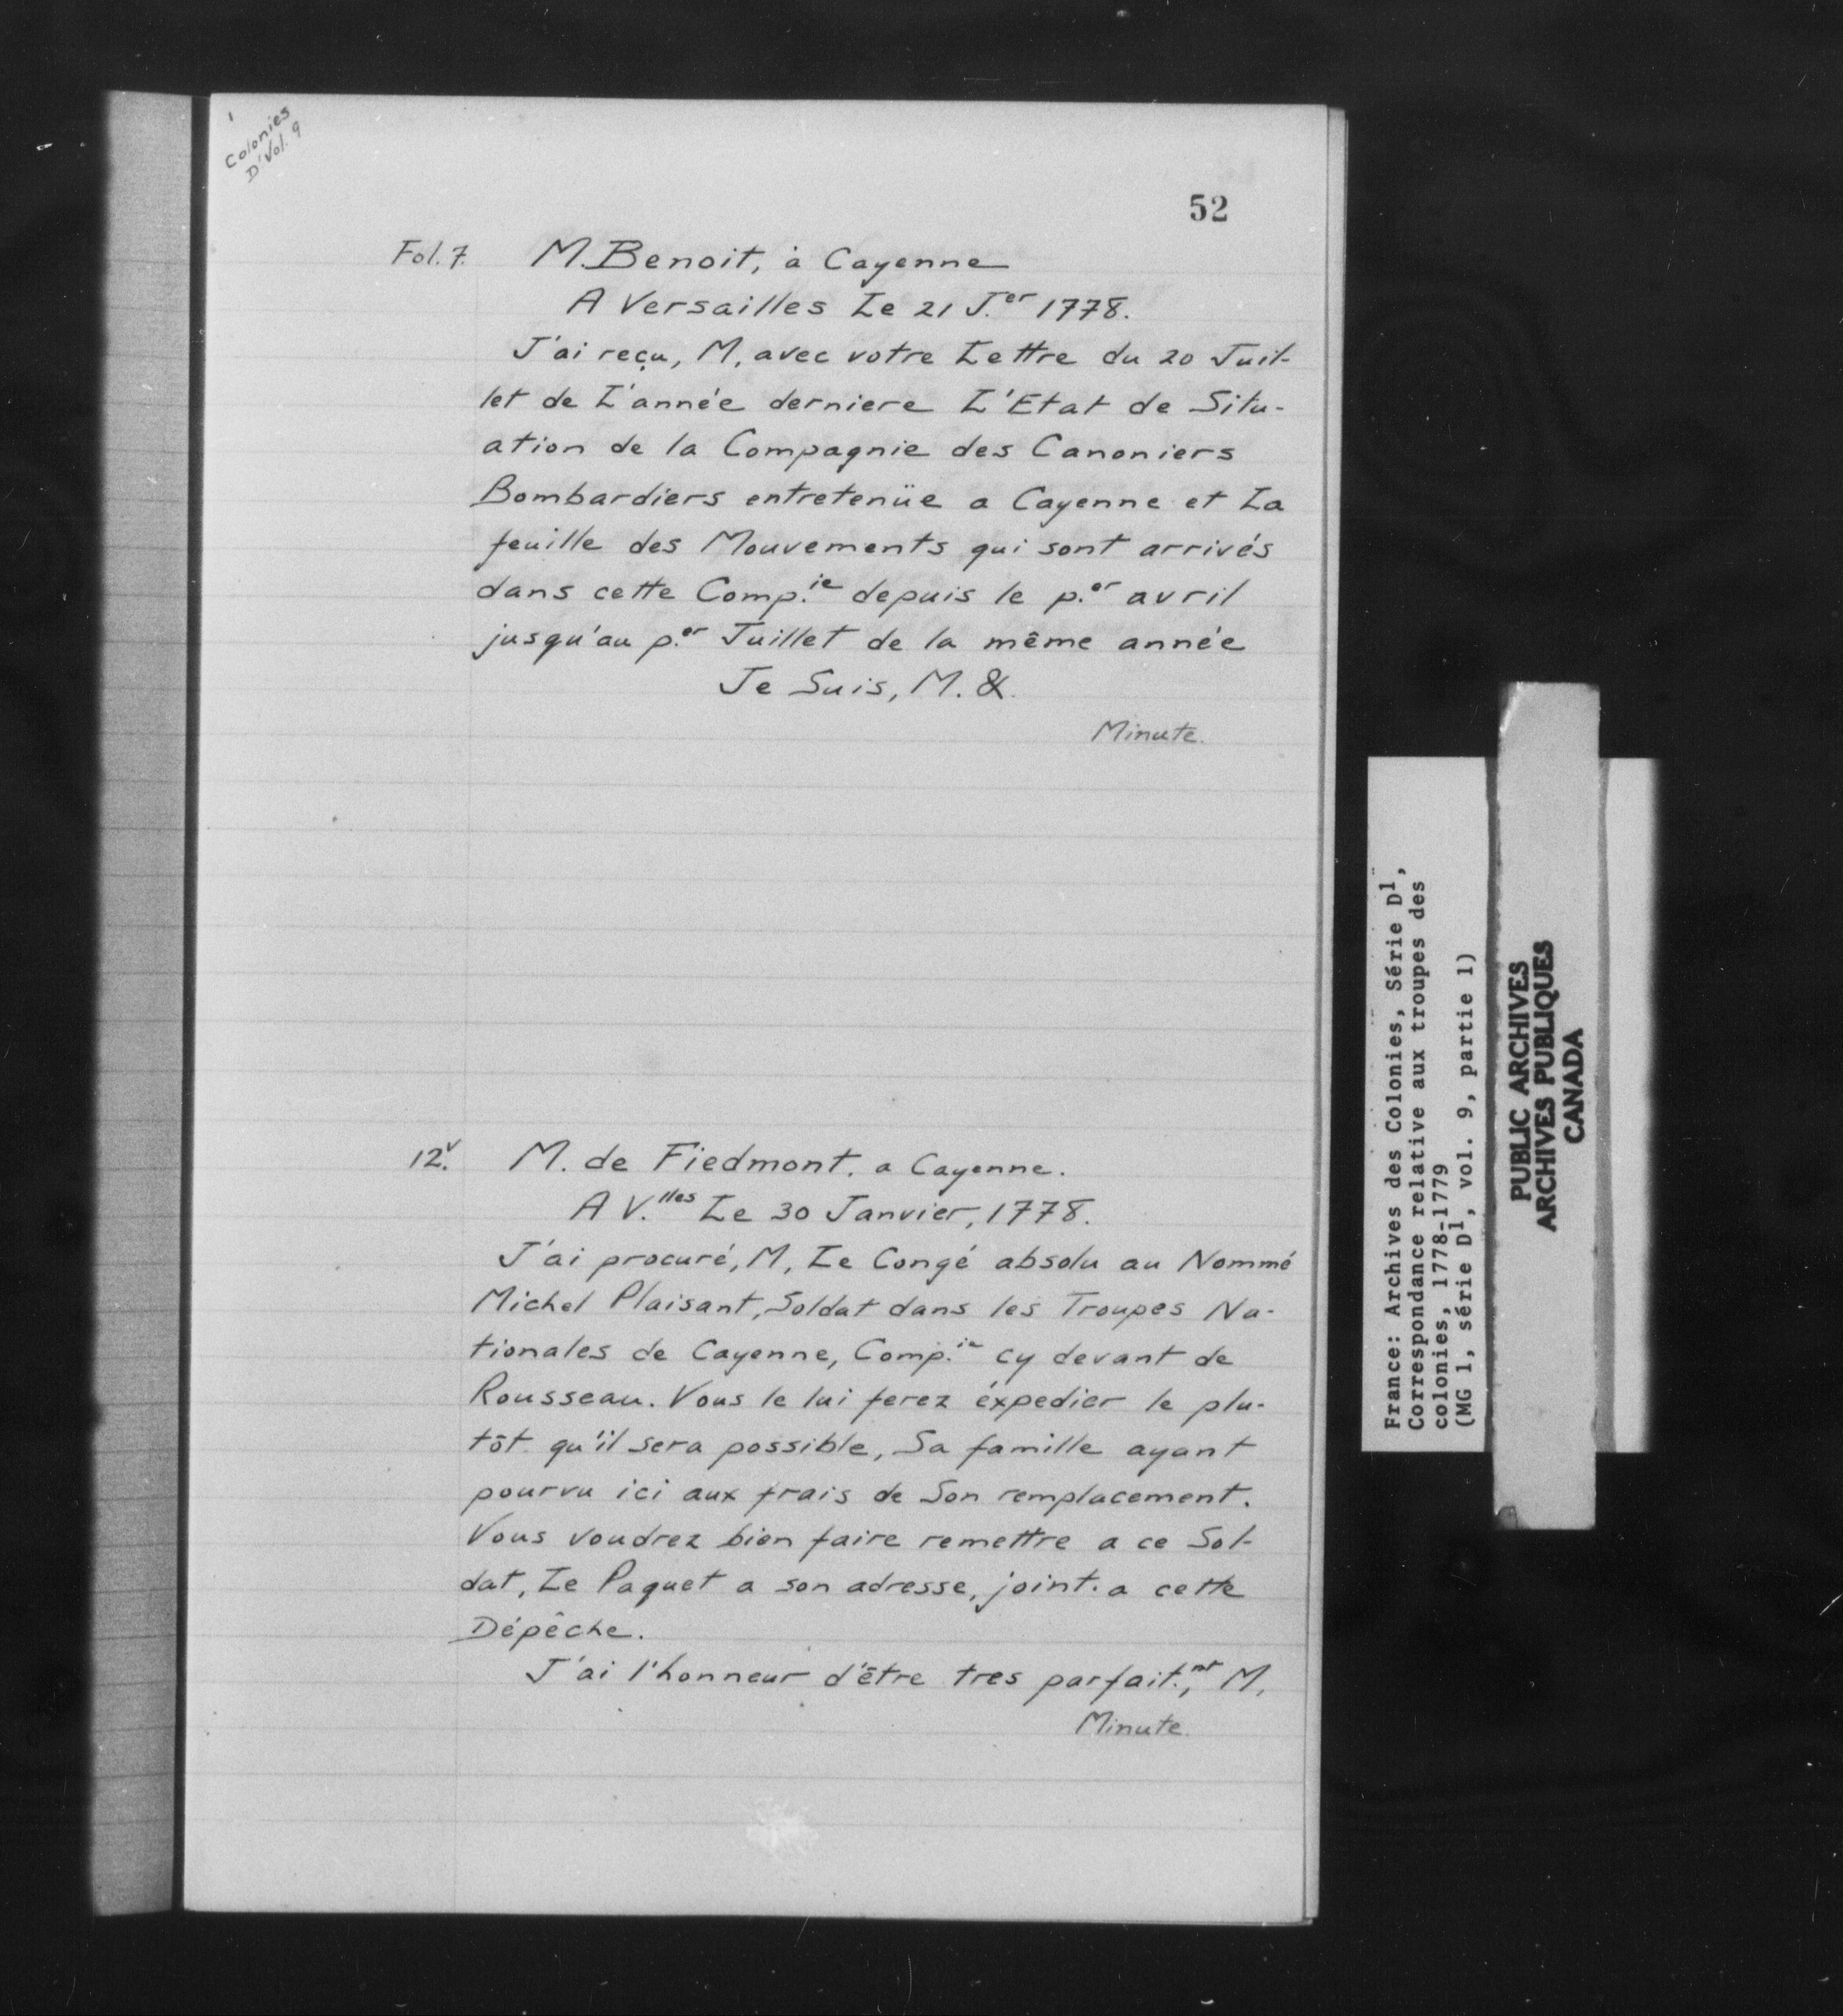 Colonies
D' Vol. 9
52
Fol. 7. M. Benoit, à Cayenne
A Versailles Le 21 J.er 1778.
J'ai reçu, M, avec votre Lettre du 20 Juil-
let de L'année derniere L'Etat de Situ-
ation de la Compagnie des Canoniers
Bombardiers entretenüe a Cayenne et La
feuille des Mouvements qui sont arrivés
dans cette Comp.ie depuis le p.er avril
jusqu'au p.er Juillet de la même année
Je Suis, M. &.
Minute.
12.v M. de Fiedmont. a Cayenne.
A V.lles Le 30 Janvier, 1778.
J'ai procuré, M, Le Congé absolu au Nommé
Michel Plaisant, Soldat dans les Troupes Na-
tionales de Cayenne, Comp.ie cy devant de
Rousseau. Vous le lui ferez éxpedier le plu-
tôt qu'il sera possible, Sa famille ayant
pourvu ici aux frais de Son remplacement.
Vous voudrez bien faire remettre a ce Sol-
dat, Le Paquet a son adresse, joint. a cette
Dépêche.
J'ai l'honneur d'être tres parfait.nt, M,
Minute.
France: Archives des Colonies, Série D1,
Correspondance relative aux troupes des
colonies, 1778-1779
(MG 1, série D1, vol. 9, partie 1)
PUBLIC ARCHIVES
ARCHIVES PUBLIQUES
CANADA